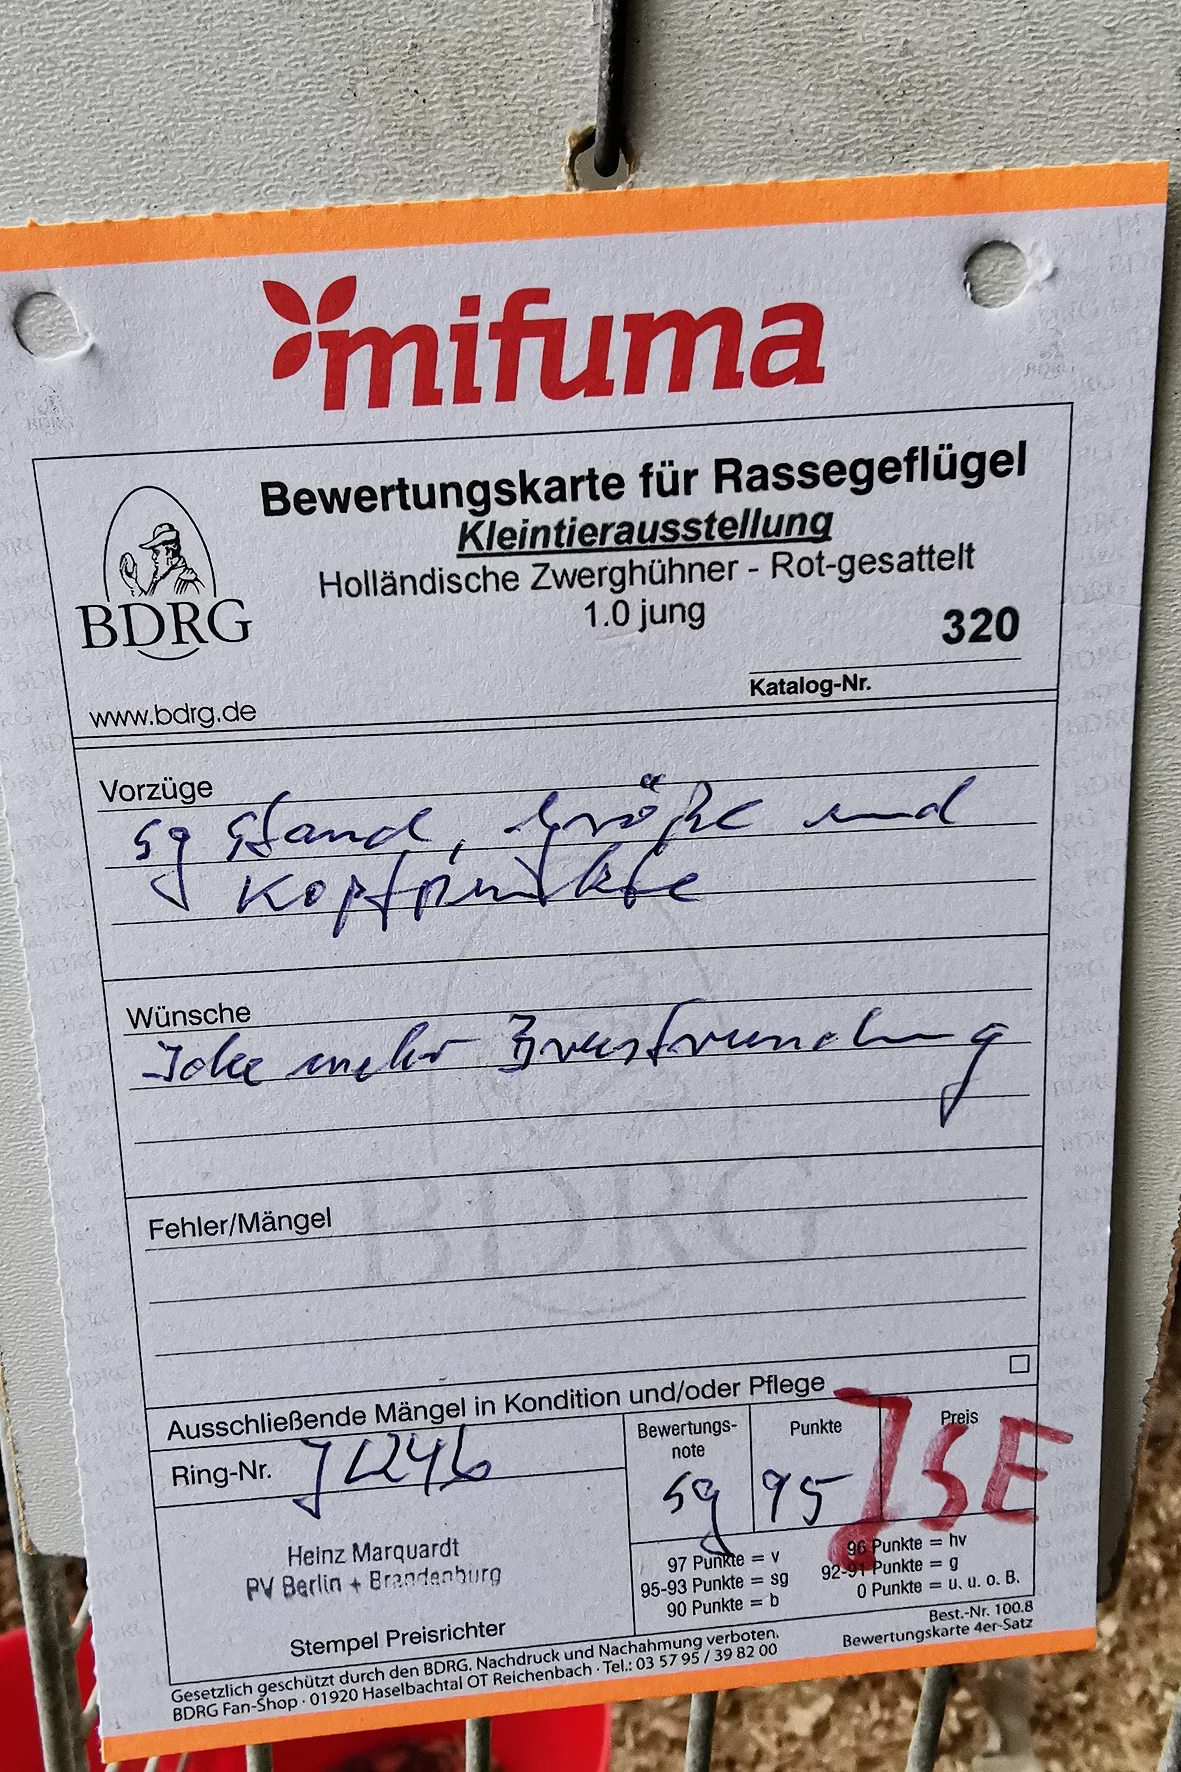 mifuma
Bewertungskarte für Rassegeflügel
Kleintierausstellung
Holländische Zwerghühner - Rot-gesattelt
1.0 jung
320
Katalog-Nr.
BDRG
www.bdrg.de
Vorzüge
sg Stand, Größe und
Kopfpunkte
Wünsche
mehr Brustrundung
Fehler/Mängel
BDRG
Ausschließende Mängel in Kondition und/oder Pflege
Ring-Nr.
Bewertungs-
note
sg
Punkte
95
Preis
SE
Heinz Marquardt
PV Berlin + Brandenburg
Stempel Preisrichter
97 Punkte = v
95-93 Punkte = sg
90 Punkte = b
96 Punkte = hv
92-91 Punkte = g
0 Punkte = u. u. o. B.
Gesetzlich geschützt durch den BDRG. Nachdruck und Nachahmung verboten.
BDRG Fan-Shop · 01920 Haselbachtal OT Reichenbach · Tel.: 03 57 95 / 39 82 00
Best.-Nr. 100.8
Bewertungskarte 4er-Satz